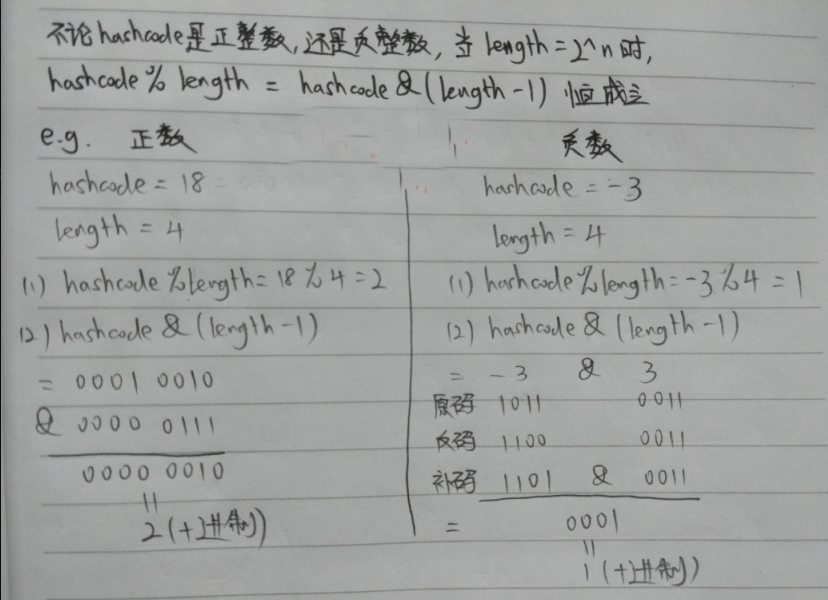 不论hashcode是正整数,还是负整数,当length=2^n时,
hashcode % length = hashcode &(length-1) 恒成立
e.g. 正数
hashcode = 18
length = 4
(1) hashcode % length = 18 % 4 = 2
(2) hashcode & (length-1)
= 0001 0010
& 0000 0111
0000 0010
=
2(十进制)
负数
hashcode = -3
length = 4
(1) hashcode % length = -3 % 4 = 1
(2) hashcode & (length-1)
= -3 & 3
原码 1011 0011
反码 1100 0011
补码 1101 & 0011
= 0001
=
1(十进制)